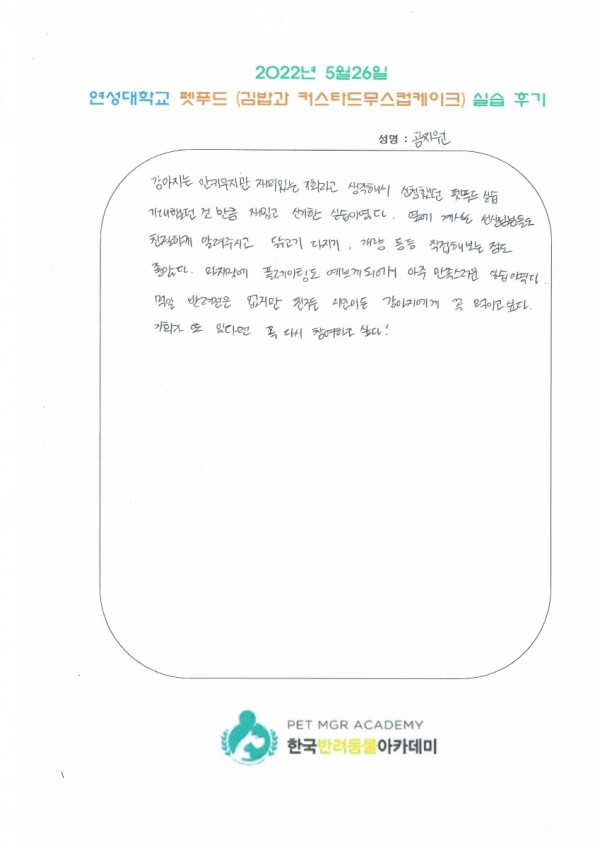 2022년 5월26일
연성대학교 펫푸드 (김밥과 커스타드무스컵케이크) 실습 후기
성명 : 공지원
강아지는 안키우지만 재미있는 기회라고 생각해서 신청했던 펫푸드 실습
기대했던 건 만큼 재밌고 신기한 실습이였다. 옆에 계시는 선생님분들도
친절하게 알려주시고 닭고기 다지기, 계량 등등 직접해보는 점도
좋았다. 마지막에 플레이팅도 예쁘게 되어서 아주 만족스러운 실습이였다.
먹일 반려견은 없지만 친구들 지인이들 강아지에게 꼭 먹이고싶다.
기회가 또 있다면 꼭 다시 참여하고 싶다!
PET MGR ACADEMY
한국반려동물아카데미